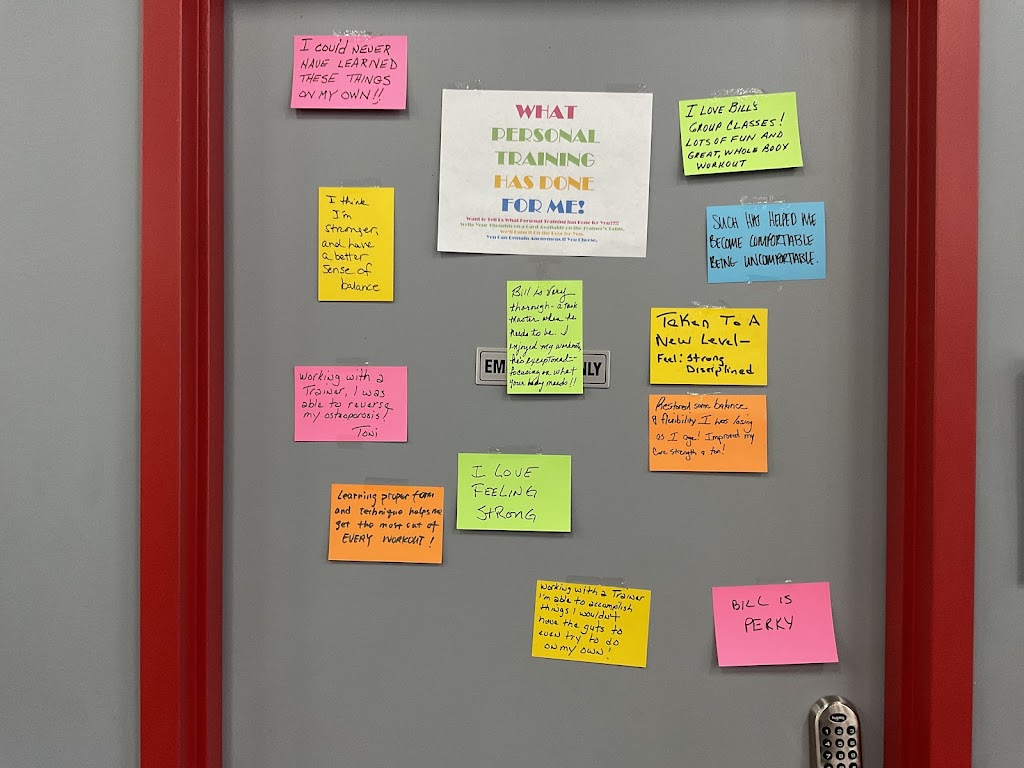 I COULD NEVER
HAVE LEARNED
THESE THINGS
ON MY OWN!!
WHAT
PERSONAL
TRAINING
HAS DONE
FOR ME!
Want to Tell Us What Personal Training has Done for You???
Write Your Thoughts on a Card Available on the Trainer's Table.
We'll Hang It On the Door for You.
You Can Remain Anonymous If You Choose.
I LOVE BILL'S
GROUP CLASSES!
LOTS OF FUN AND
GREAT, WHOLE BODY
WORKOUT
I think
I'm
stronger
and have
a better
sense of
balance
SUCH HAS HELPED ME
BECOME COMFORTABLE
BEING UNCOMFORTABLE.
Bill is very
thorough - a task
master when he
needs to be. I
enjoyed my workouts
focusing on what
your body needs!!
EM
NLY
TAKEN TO A
NEW LEVEL-
FEEL: Strong
Disciplined
Working with a
Trainer, I was
able to reverse
my osteoporosis!
Toni
Restored some balance
& flexibility I was losing
as I age! Improved my
Core strength a ton!
I LOVE
FEELING
STRONG
Learning proper form
and technique helps me
get the most out of
EVERY WORKOUT!
Working with a Trainer
I'm able to accomplish
things I wouldn't
have the guts to
even try to do
on my own!
BILL IS
PERKY